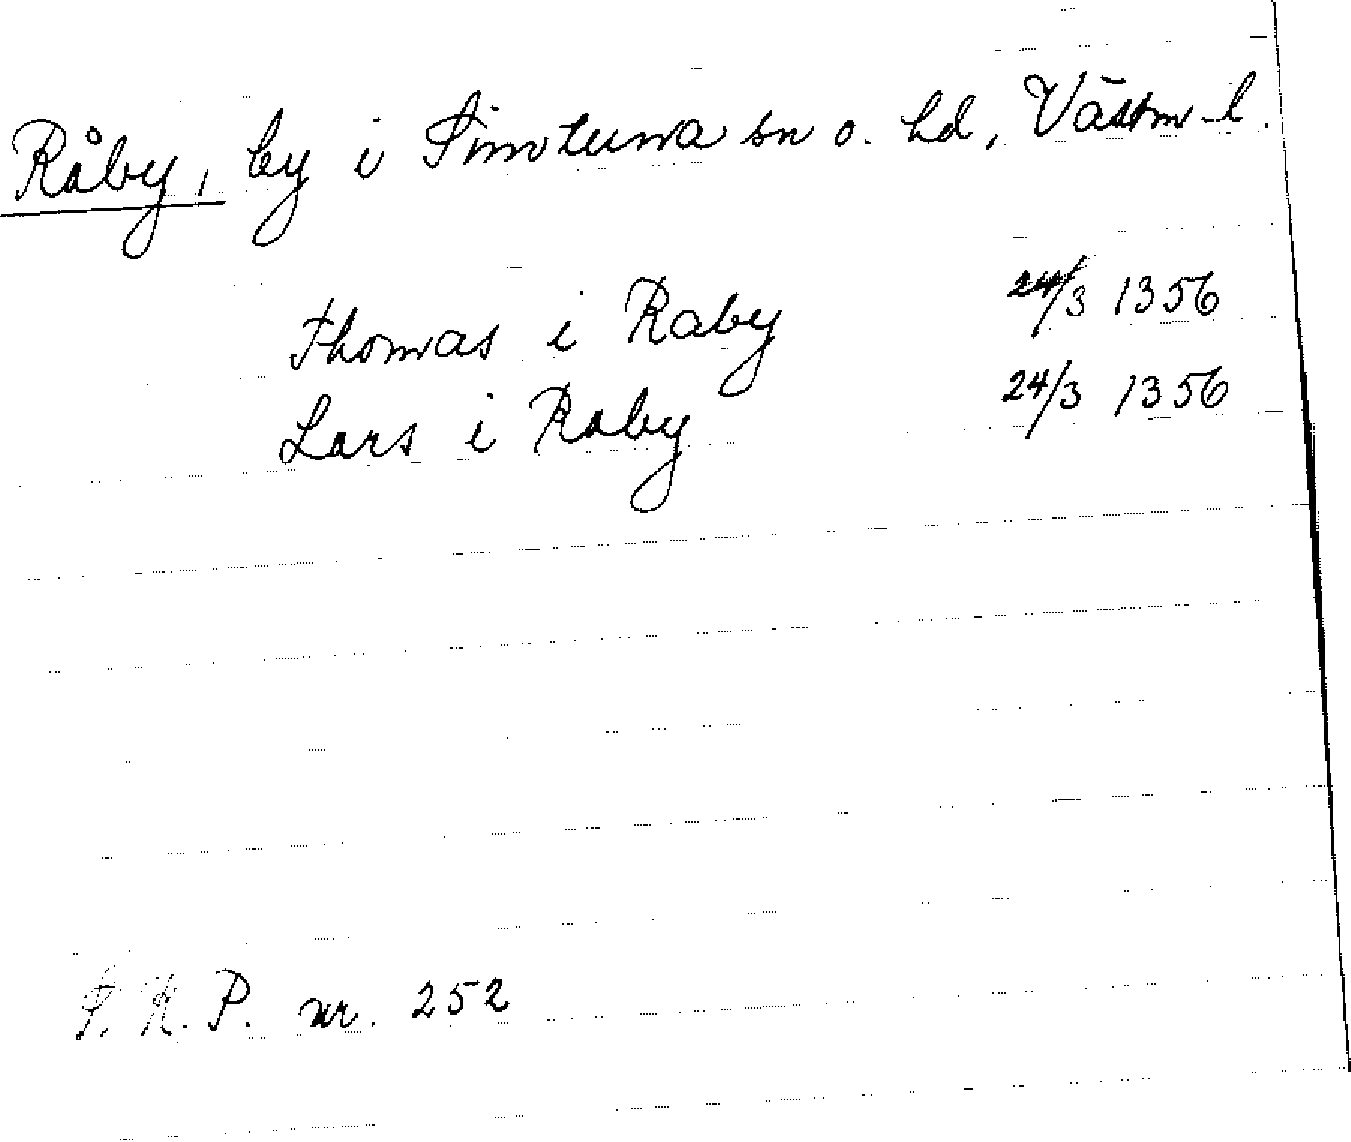 Råby, by i Simtuna sn o. hd, Västm. l.
Thomas i Raby 24/3 1356
Lars i Raby 24/3 1356
S. R. P. nr. 252